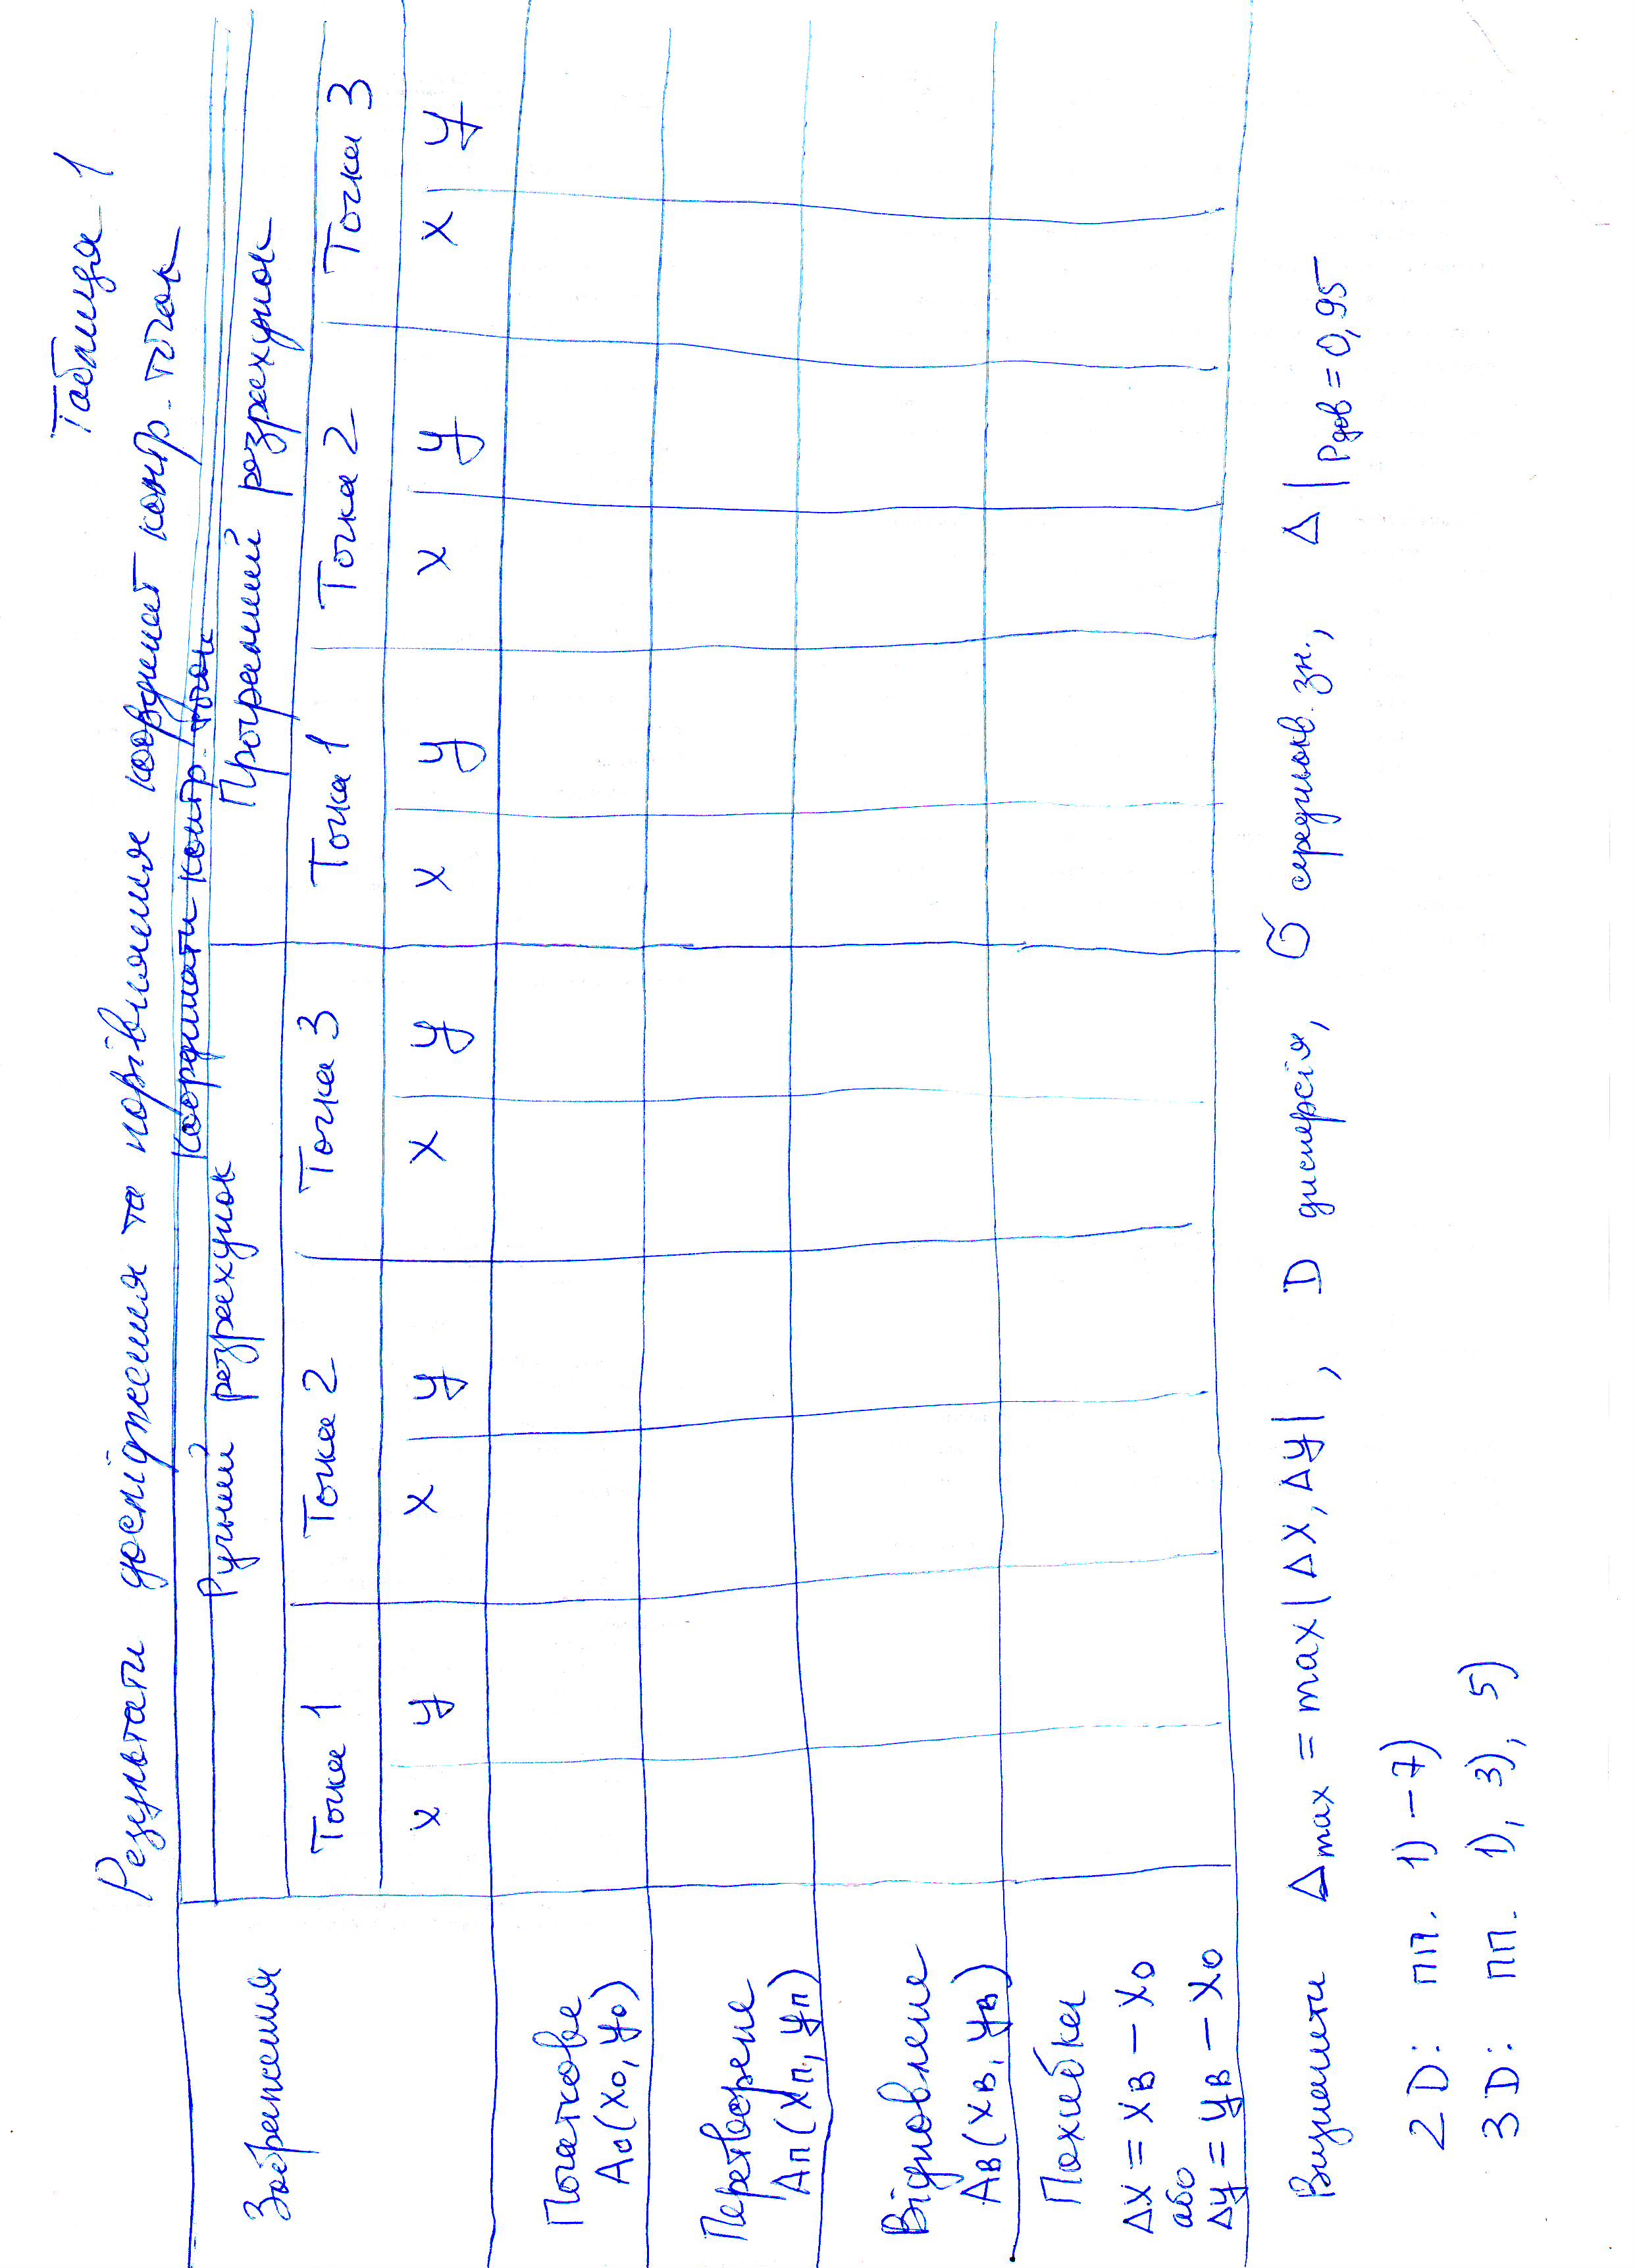 Таблиця 1
Результати дослідження та порівняння координат контр. точок
Координати контр. точок
Зображення
Ручний розрахунок
Програмний розрахунок
Точка 1 Точка 2 Точка 3 Точка 1 Точка 2 Точка 3
x y x y x y x y x y x y
Початкове
A0(x0, y0)
Перетворене
Aп(xп, yп)
Відновлене
Aв(xв, yв)
Похибка
Δx = xв – x0
або
Δy = yв – x0
Визначити Δmax = max |Δx, Δy|, D дисперсія, σ середньокв. зн., Δ | Pдов = 0,95
2D: пп. 1) – 7)
3D: пп. 1), 3), 5)